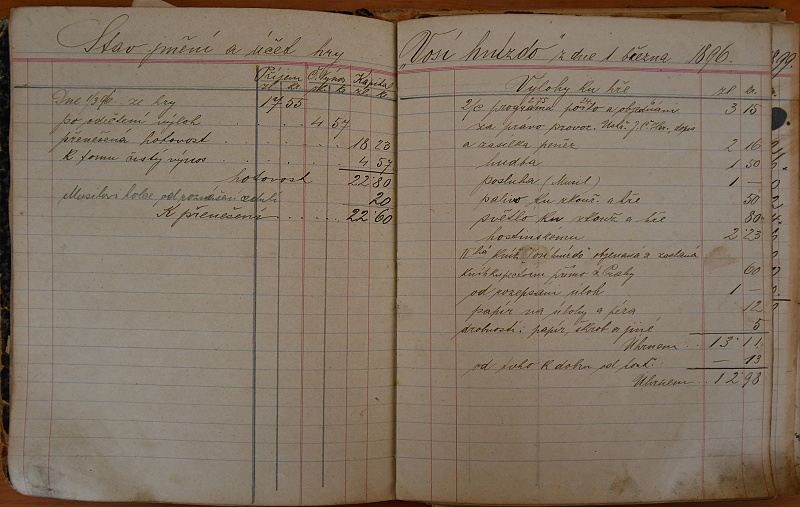 Stav jmění a účet hry
Příjem Č. Výnos Kapitál
zl. kr. zl. kr. zl. kr.
Dne 1/3 96 ze hry 17 55
po odečtení výloh . . . 4 57
přenešená hotovost . . . . 18 23
k tomu čistý výnos . . . . 4 57
hotovost 22 80
Musilov holce od roznášení cedulí 20
K přenešení . . . . 22 60
„Vosí hnízdo" z dne 1 března 1896.
Výlohy ku hře zl. kr.
2/c programů porto a objednání 3 15
za právo provoz.
a zásilka peněz 2 16
hudba 1 50
posluha (Musil) 1 —
palivo ku zkouš. a hře 50
světlo ku zkouš. a hře 80
hostinskému 2 23
II há knih. „Vosí hnízdo" objednaná a zaslaná
přímo z Prahy 60
od rozepsání úloh 1 —
papír na úlohy a péra 12
drobnosti: papír, škrob a jiné 5
Úhrnem . . 13 11
od toho k dobru od — 13
Úhrnem . . 12 98
1899